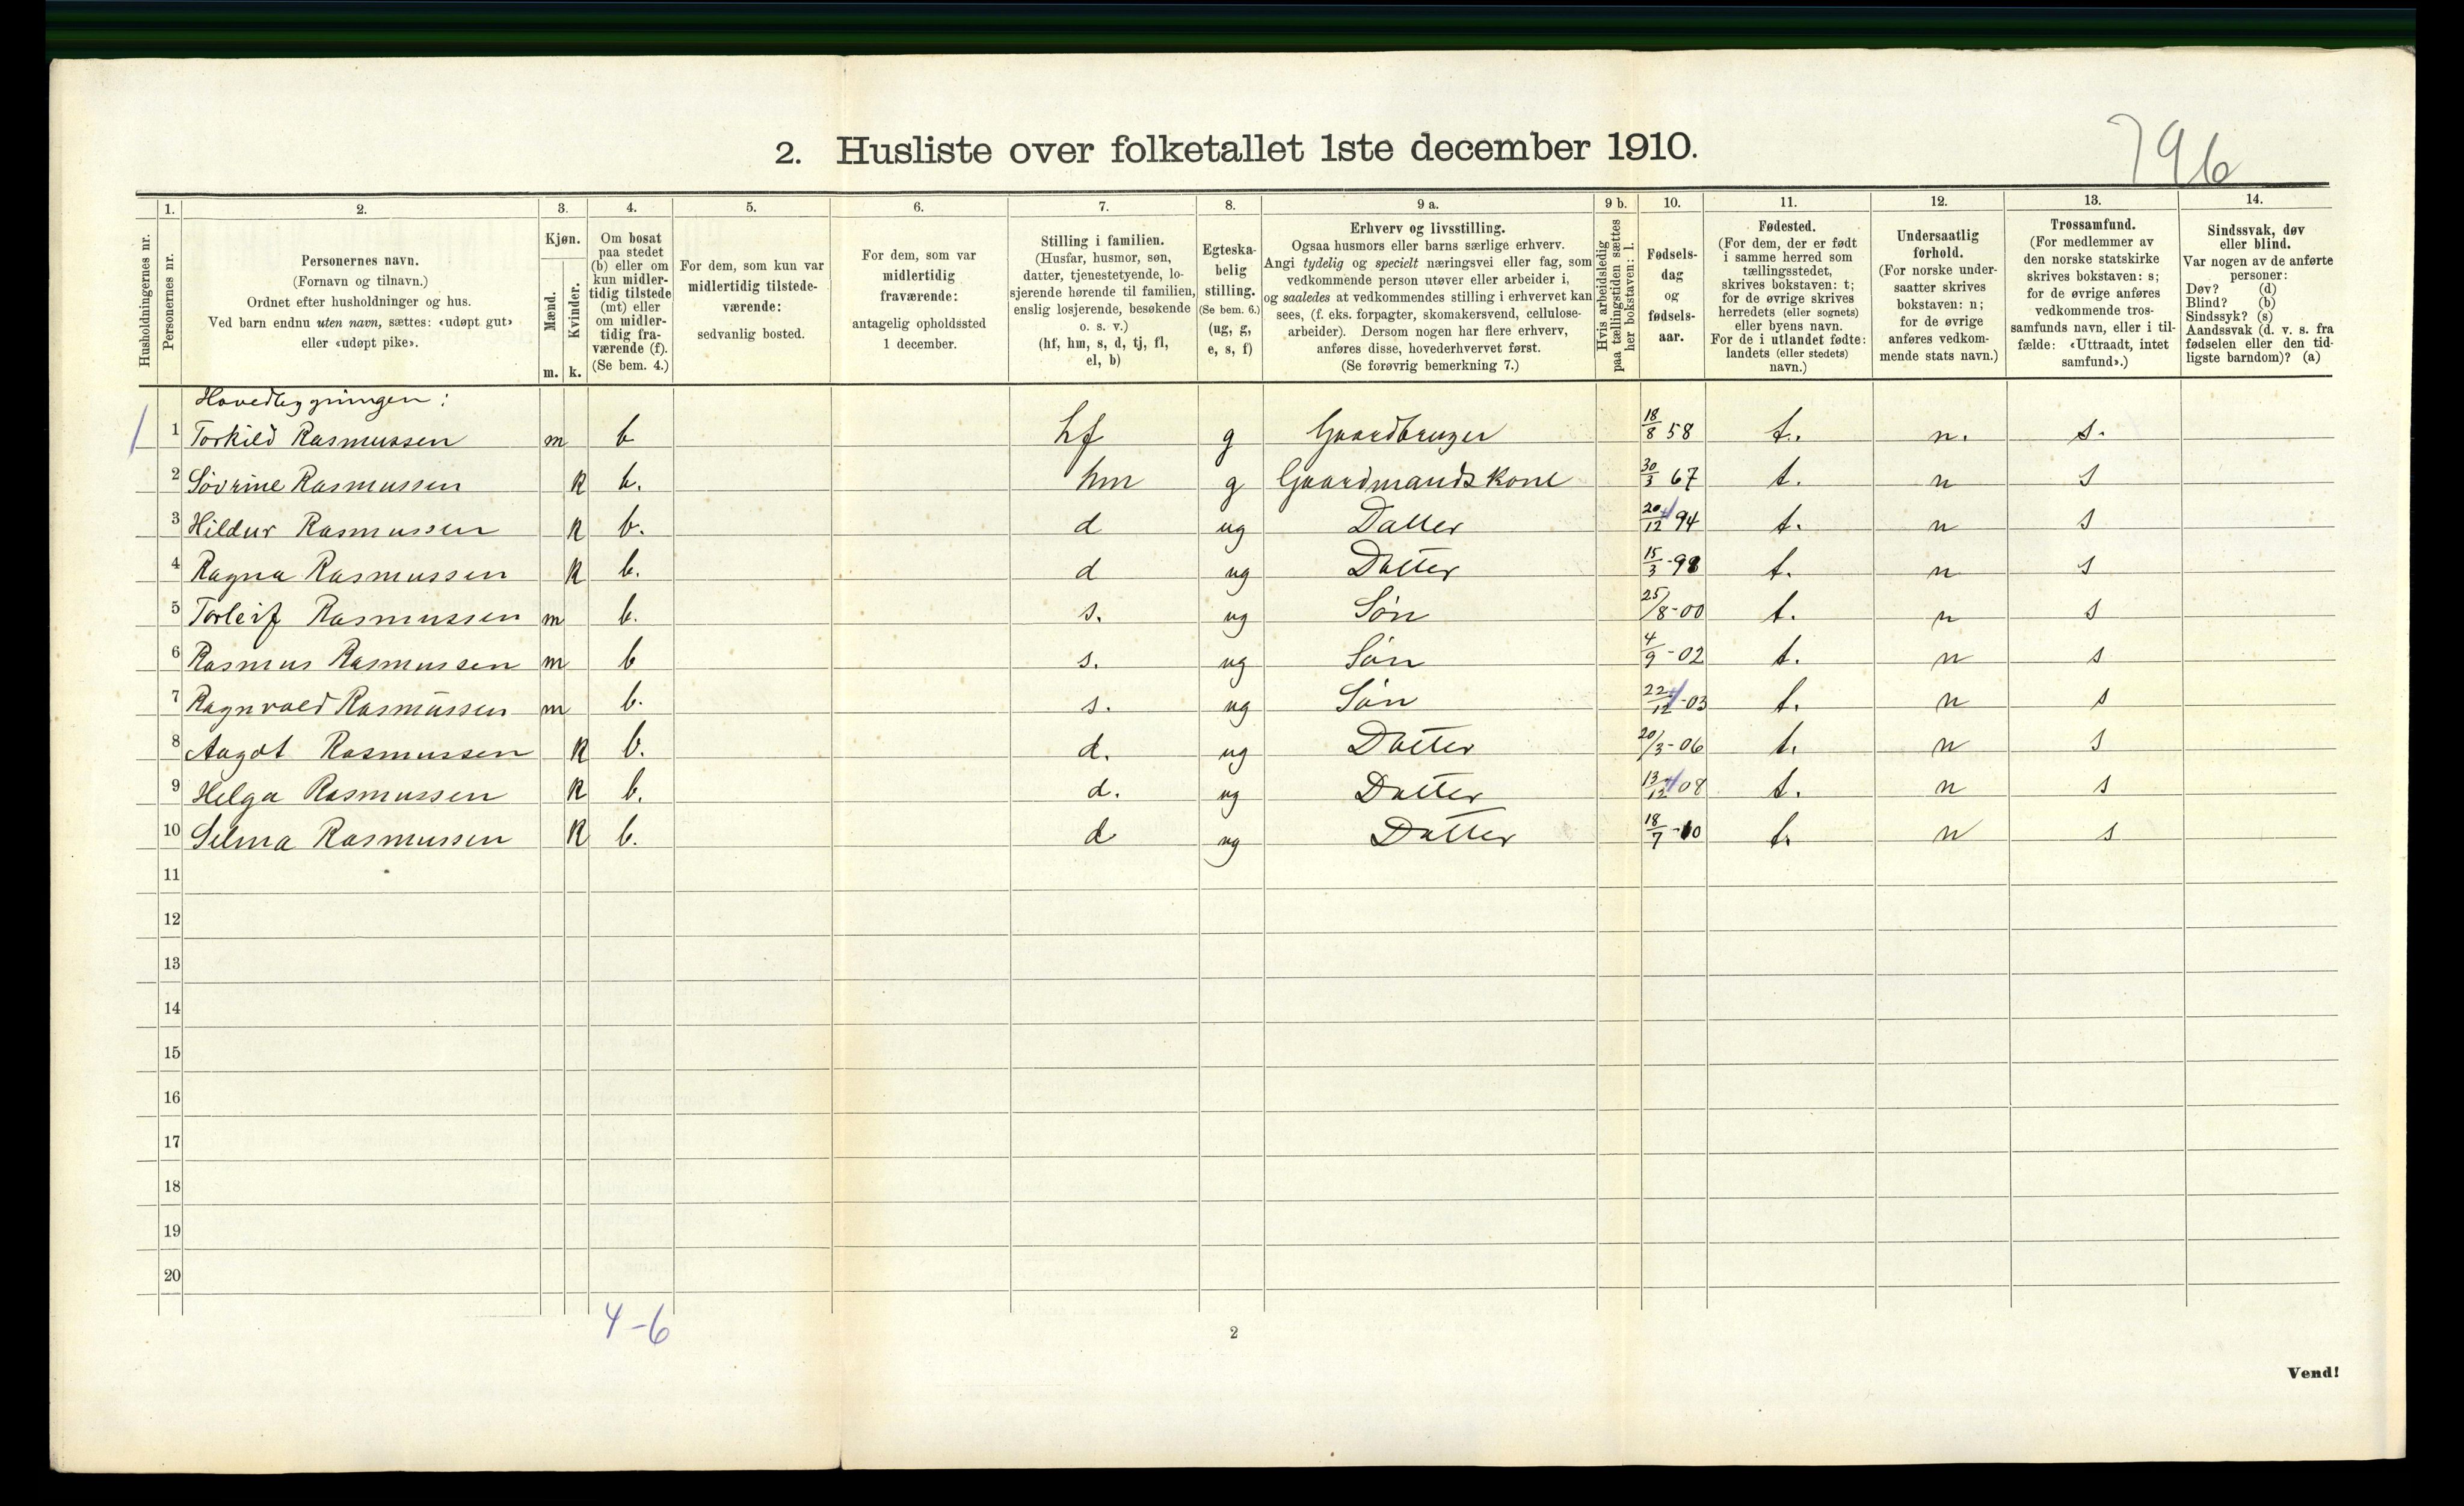 796
2. Husliste over folketallet 1ste december 1910.
Husholdningernes nr.
1.
Personernes nr.
2.
Personernes navn.
(Fornavn og tilnavn.)
Ordnet efter husholdninger og hus.
Ved barn endnu uten navn, sættes: «udøpt gut»
eller «udøpt pike».
3.
Kjøn.
Mænd.
Kvinder.
m. k.
4.
Om bosat
paa stedet
(b) eller om
kun midler-
tidig tilstede
(mt) eller
om midler-
tidig fra-
værende (f).
(Se bem. 4.)
5.
For dem, som kun var
midlertidig tilstede-
værende:
sedvanlig bosted.
6.
For dem, som var
midlertidig
fraværende:
antagelig opholdssted
1 december.
7.
Stilling i familien.
(Husfar, husmor, søn,
datter, tjenestetyende, lo-
sjerende hørende til familien,
enslig losjerende, besøkende
o. s. v.)
(hf, hm, s, d, tj, fl,
el, b)
8.
Egteska-
belig
stilling.
(Se bem. 6.)
(ug, g,
e, s, f)
9 a.
Erhverv og livsstilling.
Ogsaa husmors eller barns særlige erhverv.
Angi tydelig og specielt næringsvei eller fag, som
vedkommende person utøver eller arbeider i,
og saaledes at vedkommendes stilling i erhvervet kan
sees, (f. eks. forpagter, skomakersvend, cellulose-
arbeider). Dersom nogen har flere erhverv,
anføres disse, hovederhvervet først.
(Se forøvrig bemerkning 7.)
9 b.
Hvis arbeidsledig
paa tællingstiden sættes
her bokstaven: l.
10.
Fødsels-
dag
og
fødsels-
aar.
11.
Fødested.
(For dem, der er født
i samme herred som
tællingsstedet,
skrives bokstaven: t;
for de øvrige skrives
herredets (eller sognets)
eller byens navn.
For de i utlandet fødte:
landets (eller stedets)
navn.)
12.
Undersaatlig
forhold.
(For norske under-
saatter skrives
bokstaven: n;
for de øvrige
anføres vedkom-
mende stats navn.)
13.
Trossamfund.
(For medlemmer av
den norske statskirke
skrives bokstaven: s;
for de øvrige anføres
vedkommende tros-
samfunds navn, eller i til-
fælde: «Uttraadt, intet
samfund».)
14.
Sindssvak, døv
eller blind.
Var nogen av de anførte
personer:
Døv? (d)
Blind? (b)
Sindssyk? (s)
Aandssvak (d. v. s. fra
fødselen eller den tid-
ligste barndom)? (a)
Hovedbygningen:
1 1 Torkild Rasmussen m b hf g Gaardbruger 18/8 58 t. n. s.
2 Sövrine Rasmussen k b. hm g Gaardmandskone 30/3 67 t. n s
3 Hildur Rasmussen k b. d ug Datter 20/12 94 t. n s
4 Ragna Rasmussen k b. d ug Datter 15/3-98 t. n s
5 Torleif Rasmussen m b. s. ug Søn 25/8-00 t. n s
6 Rasmus Rasmussen m b s. ug Søn 4/9-02 t. n s
7 Ragnvald Rasmussen m b. s. ug Søn 22/12-03 t. n s
8 Aagot Rasmussen k b. d. ug Datter 20/3-06 t. n s
9 Helga Rasmussen k b. d. ug Datter 13/12 08 t. n s
10 Selma Rasmussen k b. d ug Datter 18/7-10 t. n s
11
12
13
14
15
16
17
18
19
20
4-6
2
Vend!